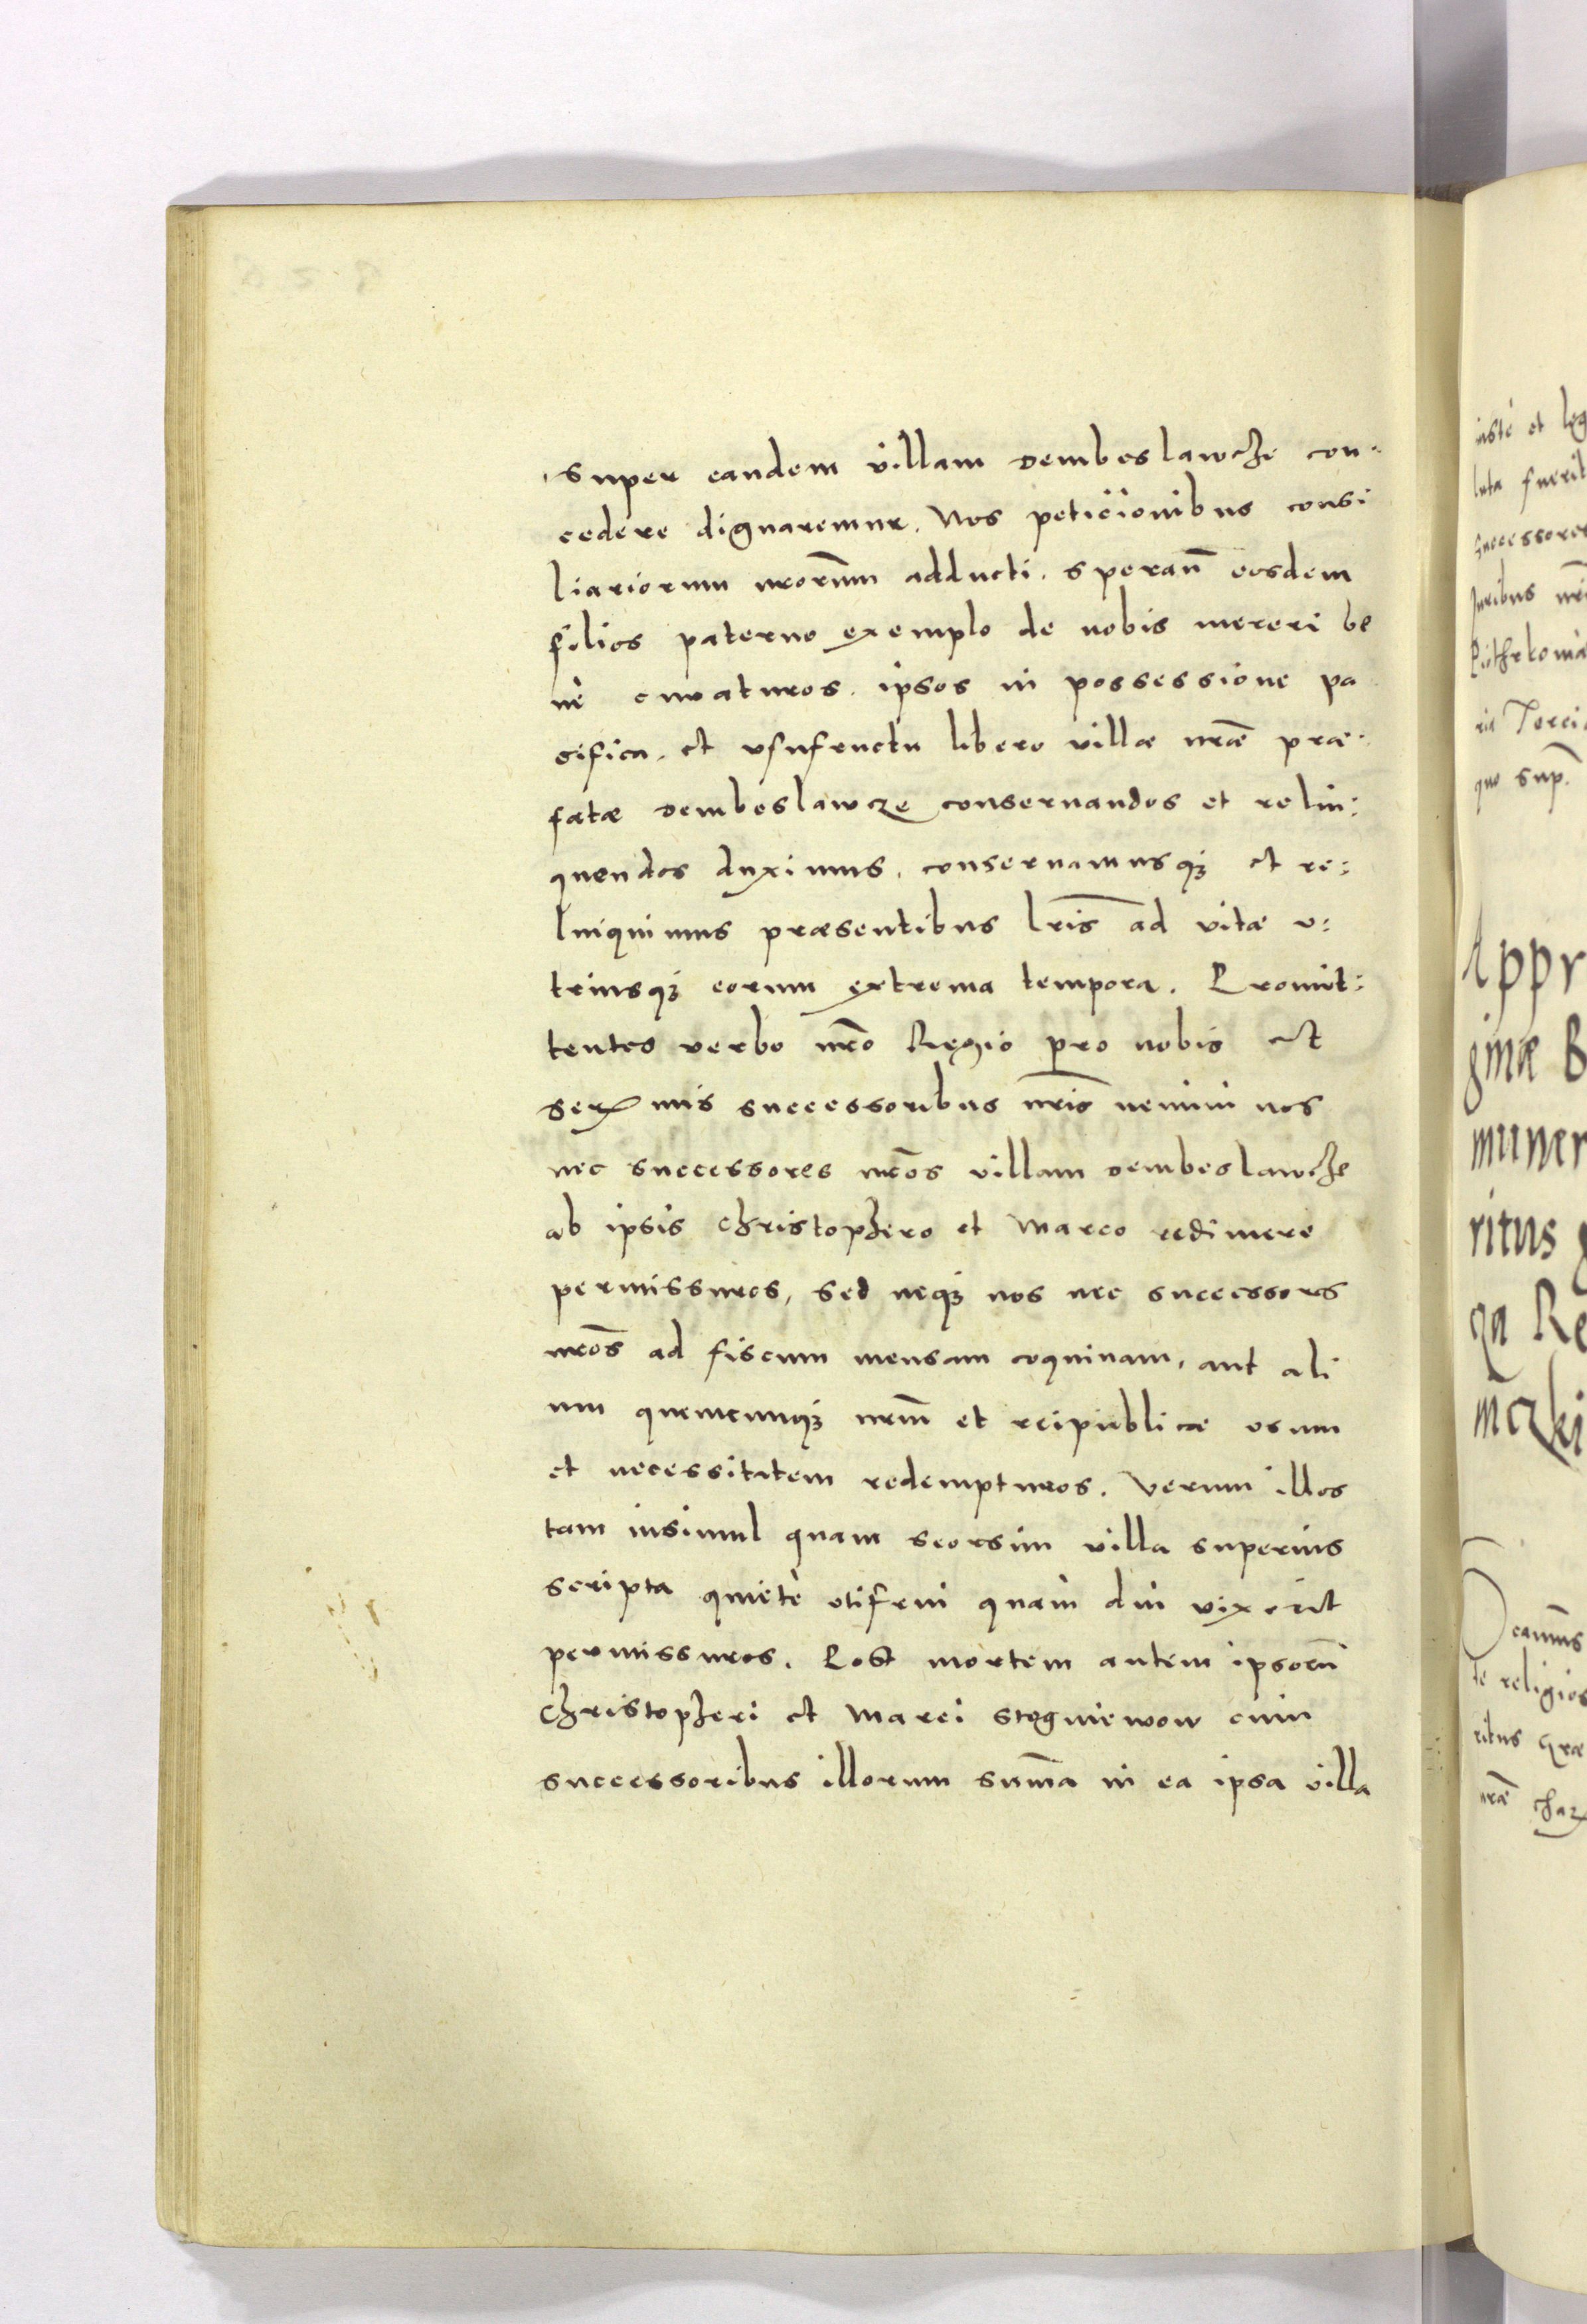 super eandem villam Dembeslawche con-
cedere dignaremur. Nos peticionibus consi
liariorum nrorum adducti. sperañ eosdem
filios paterno exemplo de nobis mereri be
nè curaturos. ipsos in possessione pa
cifica. et vsufructu libero villæ nræ præ-
fatæ Dembeslawcze conseruandos et relin:
quendos duximus. conseruamusq; et re:
linquimus præsentibus lris ad vitæ v:
triusq; eorum extrema tempora. Promit:
tentes verbo nro Regio pro nobis et
Ser mis successoribus nris nemini nos
nec successores nros villam Dembeslawche
ab ipsis Christophero et Marco redimere
permissuros, sed neq; nos nec successors
nros ad fiscum mensam coquinam, aut ali
um quemcunq; nrum et reipublicæ vsum
et necessitatem redempturos. Verum illos
tam insimul quam seorsim villa superius
scripta quietè vtifrui quam diu vixerit
permissuros. Post mortem autem ipsorum
Christopheri et Marci Stogniewow cum
successoribus illorum summa in ea ipsa villa
iustè et leg
luta fuerit
successores
Juribus nri
Piothrkowia
ris Tercia
quo sup.
Appr
ginæ B
muner
ritus
ga Re
mczki
ecamus
te religios
ritus Græ
nræ Chaz